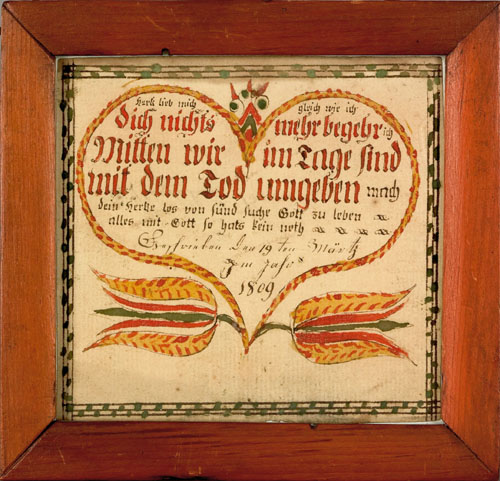 Herk lieb mich gleich wie ich
Dich nichts mehr begehr ich
Mitten wir im Tage sind
mit dem Tod umgeben mach
dein Hertze los von sünd suche Gott zu leben
alles mit Gott so hats kein noth
Geschrieben den 19ten Märtz
Im Jahr
1809